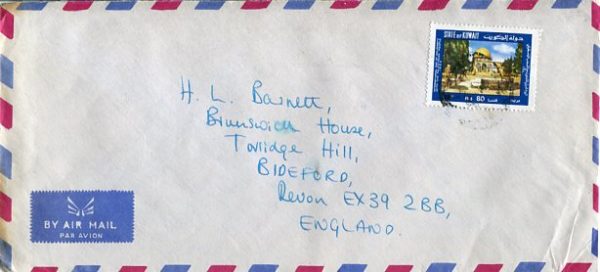 دولة الكويت
STATE OF KUWAIT
80
H. L. Barnett,
Brunswick House,
Torridge Hill,
BIDEFORD,
Devon EX39 2BB,
ENGLAND.
BY AIR MAIL
PAR AVION